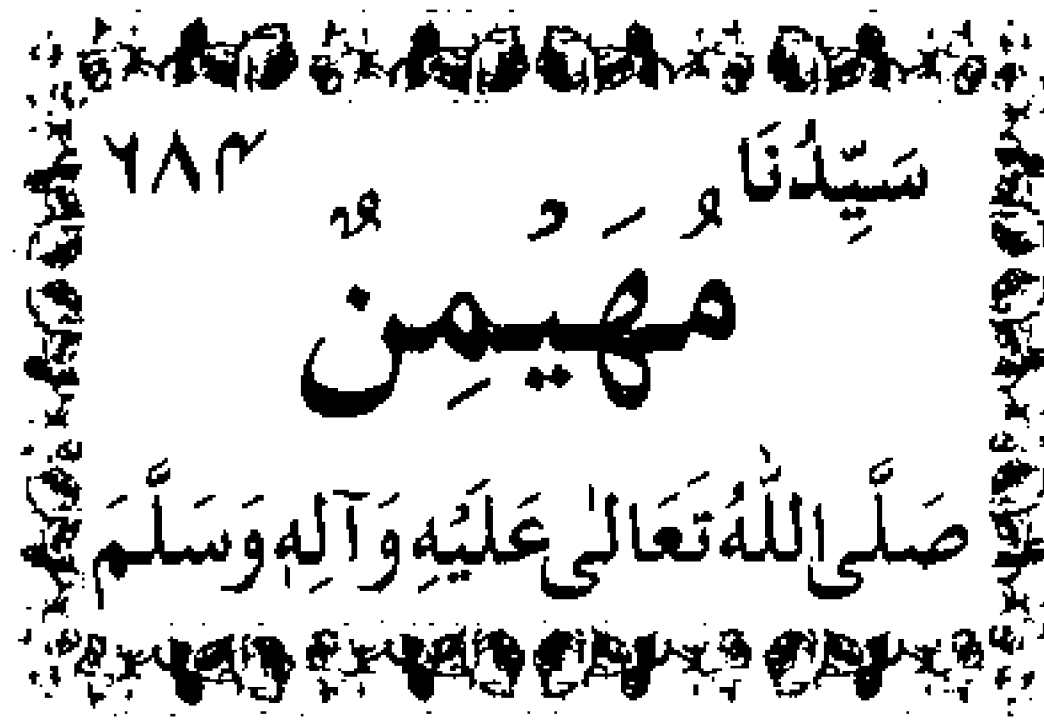 سَيِّدُنَا ۶۸۴
مُهَيْمِنٌ
صَلَّى اللّٰهُ تَعَالٰى عَلَيْهِ وَآلِهٖ وَسَلَّمَ